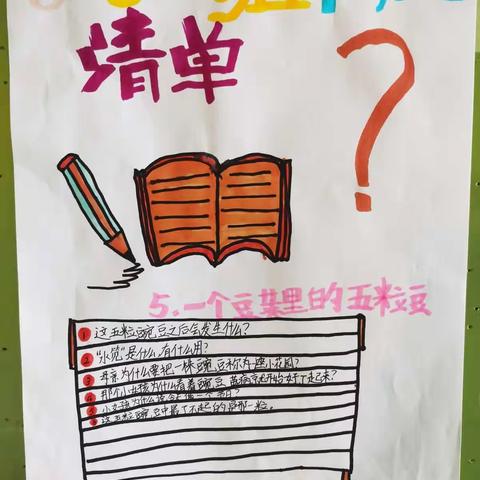 清单
?
5.一个豆荚里的五粒豆
1 这五粒豌豆之后会发生什么?
2 "水笕"是什么,有什么用?
3 母亲为什么要把一株豌豆称为一座小花园?
4 那个小女孩为什么看着豌豆苗病就开始好了起来?
5 小女孩为什么
6 这五粒豌豆中最了不起的是那一粒。